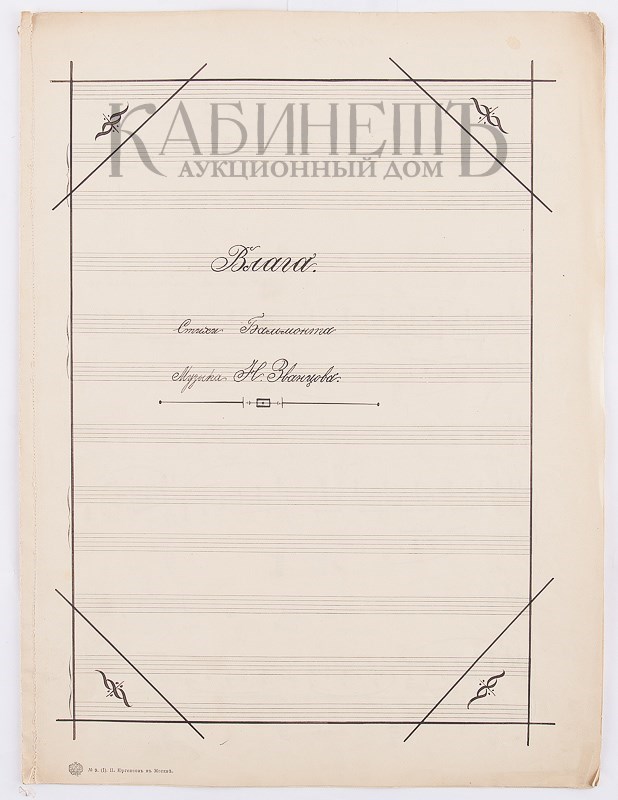 КАБИНЕТЪ
АУКЦИОННЫЙ ДОМ
Влага.
Стихи Бальмонта
Музыка Н. Званцова.
№ 2. (I). П. Юргенсонъ въ Москвѣ.